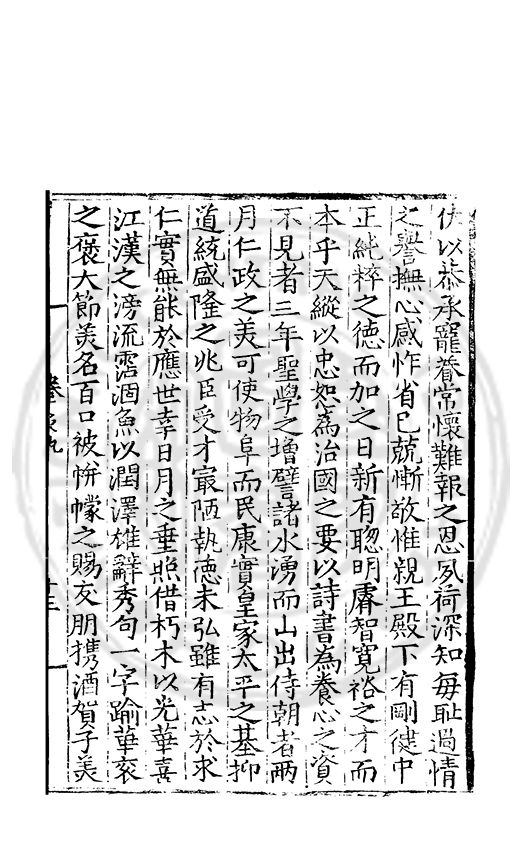 伏以恭承寵眷常懷難報之恩夙荷深知每恥過情
之譽撫心感怍省已兢慚敬惟親王殿下有剛健中
正純粹之德而加之日新有聦明睿智寛裕之才而
本乎天縱以忠恕為治國之要以詩書為養心之資
不見者三年聖學之增譬諸水湧而山出侍朝者兩
月仁政之美可使物阜而民康實皇家太平之基抑
道統盛隆之兆臣受才寂陋執徳未弘雖有志於求
仁實無能於應世幸日月之垂照借朽木以光華喜
江漢之滂流霑涸魚以潤澤雄辭秀句一字踰華衮
之襃大節美名百口被帡幪之賜交朋携酒賀子美
卷之九
十三